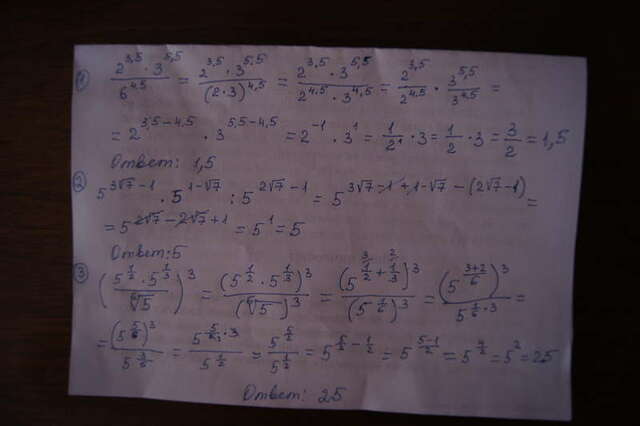 ① (2^3,5 · 3^5,5)/(6^4,5) = (2^3,5 · 3^5,5)/((2·3)^4,5) = (2^3,5 · 3^5,5)/(2^4,5 · 3^4,5) = 2^3,5/2^4,5 · 3^5,5/3^4,5 =
= 2^(3,5-4,5) · 3^(5,5-4,5) = 2^-1 · 3^1 = 1/2^1 · 3 = 1/2 · 3 = 3/2 = 1,5
Ответ: 1,5
② 5^(3√7-1) · 5^(1-√7) : 5^(2√7-1) = 5^(3√7-1+1-√7-(2√7-1)) =
= 5^(2√7-2√7+1) = 5^1 = 5
Ответ: 5
③ ((5^(1/2) · 5^(1/3))/⁶√5)^3 = (5^(1/2) · 5^(1/3))^3/(⁶√5)^3 = (5^(1/2+1/3))^3/(5^(1/6))^3 = (5^((3+2)/6))^3/5^(1/6·3) =
= (5^(5/6))^3/5^(3/6) = 5^(5/6·3)/5^(1/2) = 5^(5/2)/5^(1/2) = 5^(5/2-1/2) = 5^((5-1)/2) = 5^(4/2) = 5^2 = 25
Ответ: 25